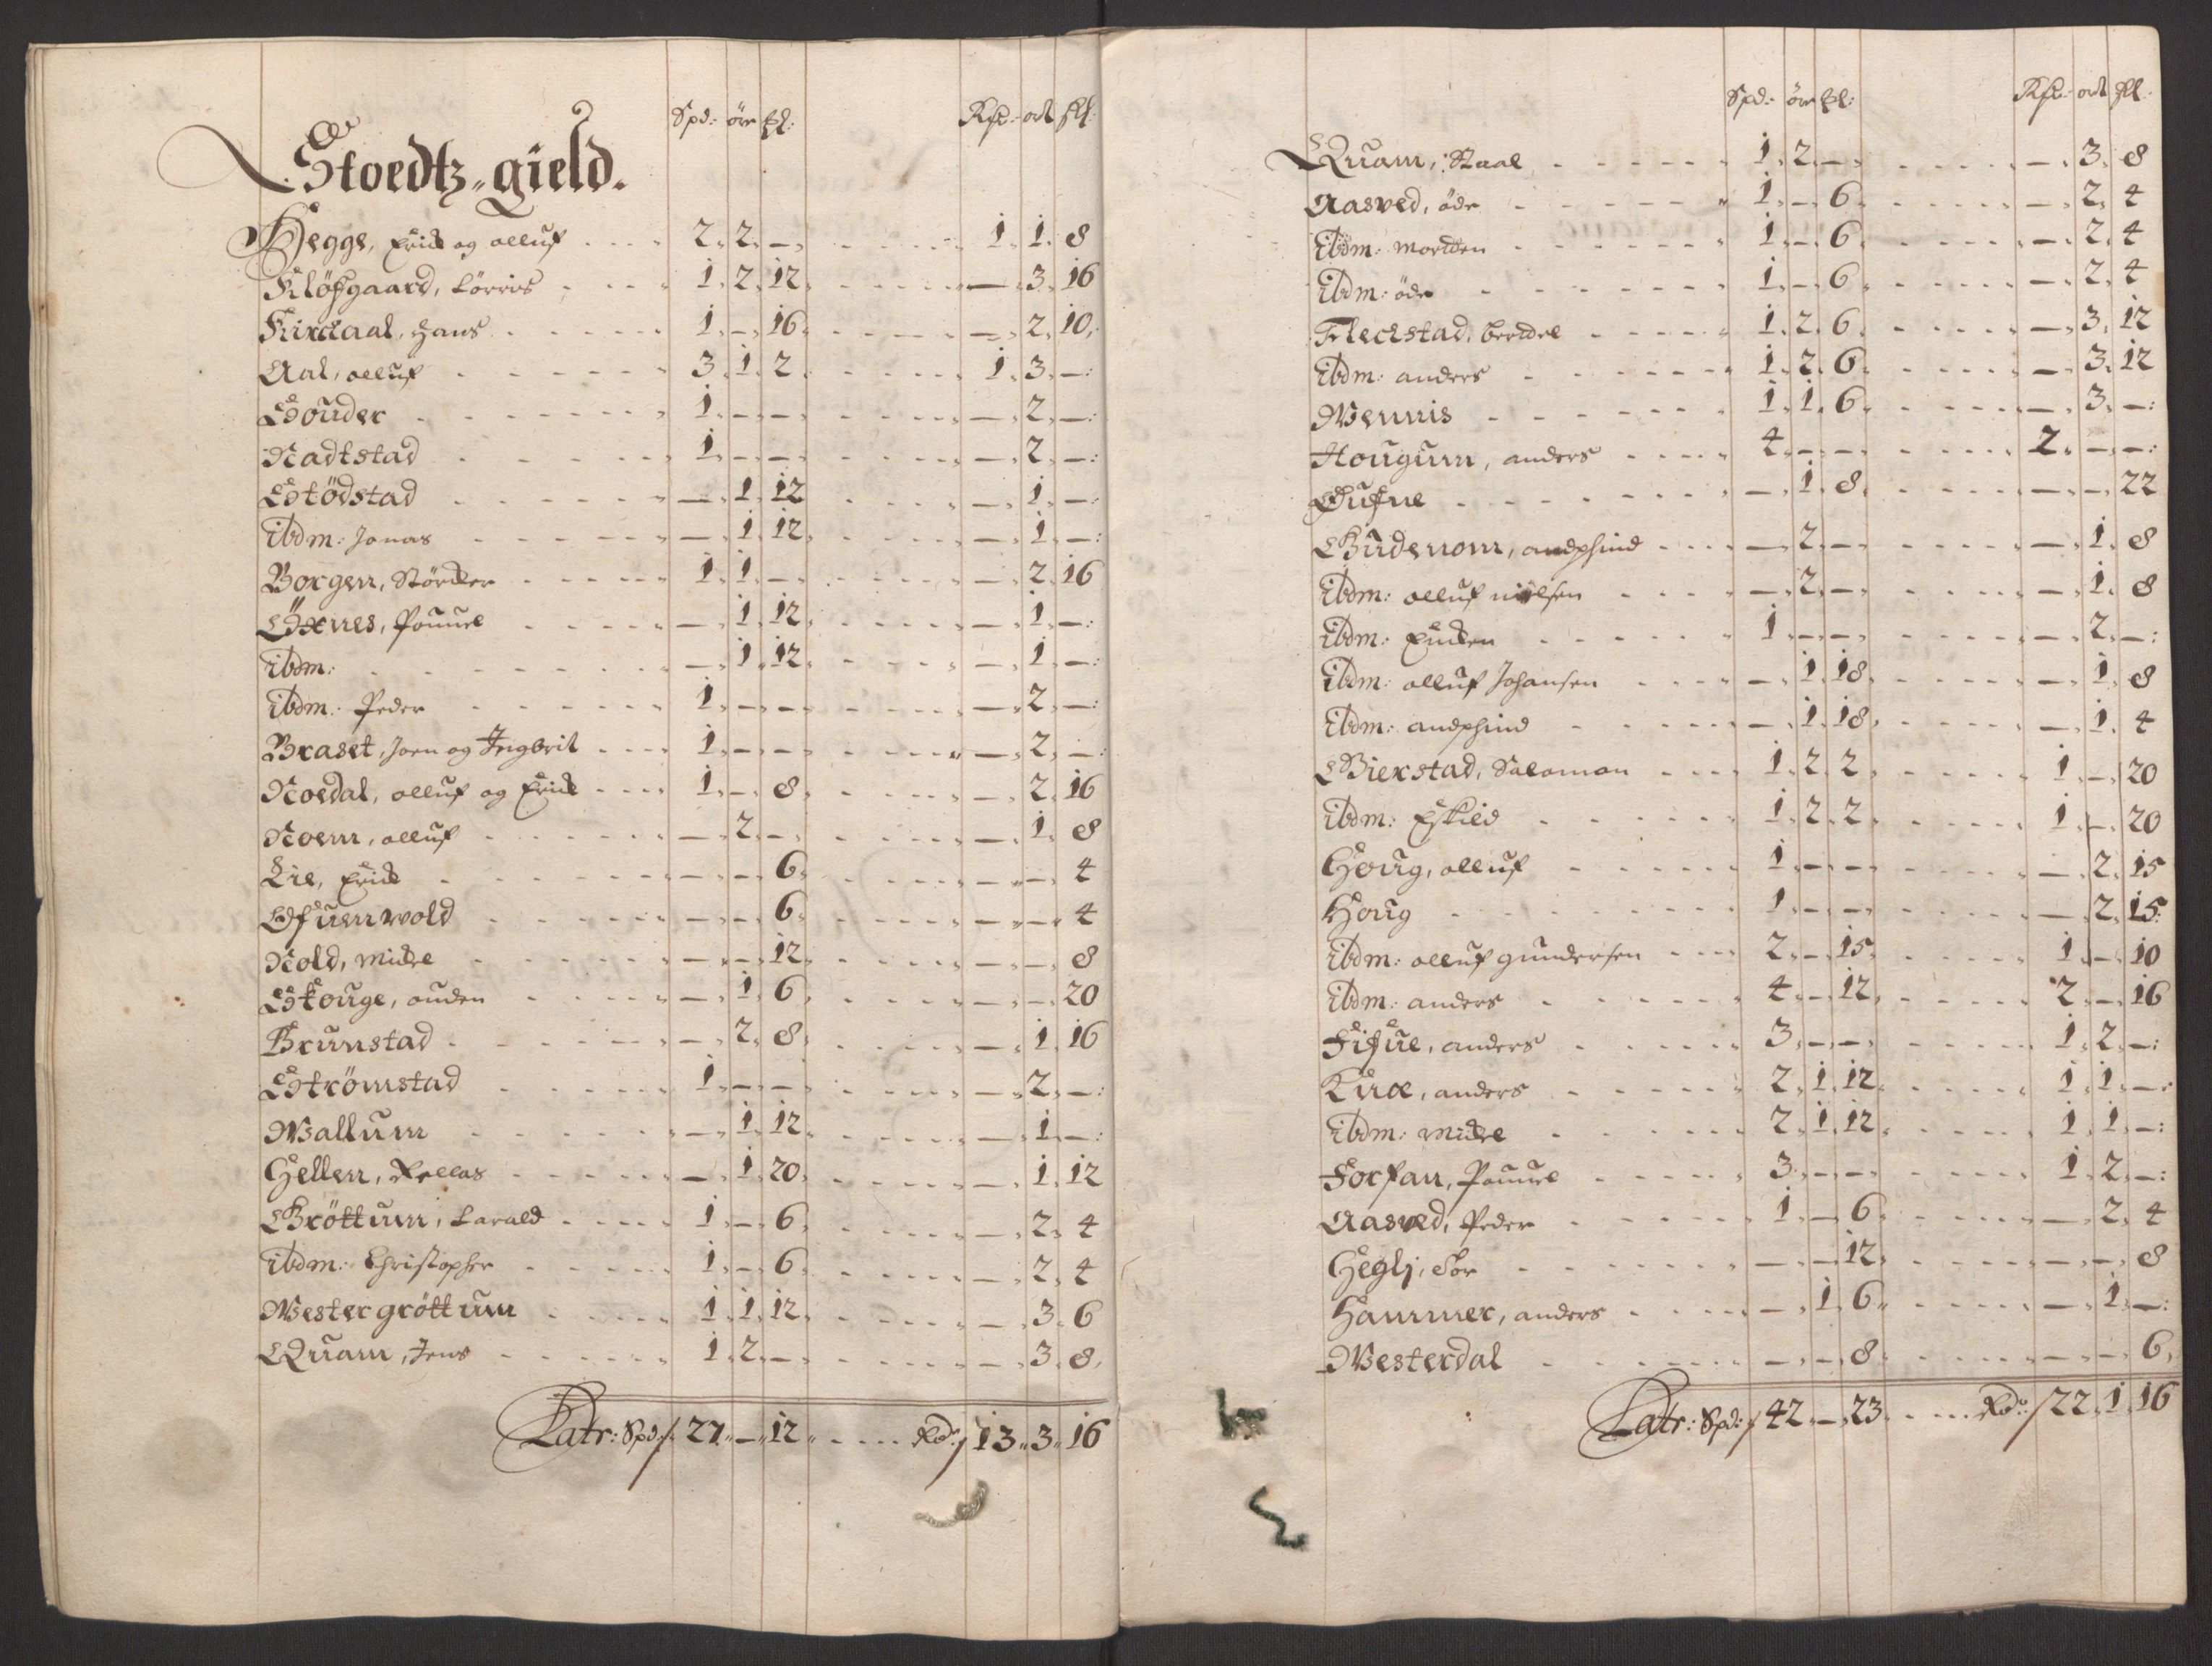 Spd: ör ßl: Rdr: ort ßl:
Stoedtz-gield.
Hegge, Erick og olluf 2. 2. — 1. 1. 8
Klöfgaard, 1. 2. 12 — 3. 16
Kirckaal, Hans 1. — 16. — 2. 10.
Aal, olluf 3. 1. 2 1. 3. —:
Souder 1. — — — 2. —:
Nadtstad 1. — — — 2. —:
Stödstad — 1. 12 — 1. —:
ibdm: Jonas — 1. 12. — 1. —:
Borgen, Störcker 1. 1. — — 2. 16
Öxnes, Pouuel — 1. 12. — 1. —:
ibdm: — 1. 12. — 1. —:
ibdm: Peder 1. — — — 2. —:
Braset, Joen og Ingbrit 1. — — — 2. —:
Noedal, olluf og Erick 1. — 8. — 2. 16
Noem, olluf — 2. — — 1. 8
Lie, Erick — — 6. — — 4
Ofuenwold — — 6. — — 4
Nold, Mickel — — 12. — — 8
Skouge, ouden — 1. 6. — — 20
Brunstad — 2. 8. — 1. 16
Strömstad 1. — — — 2. —:
Wallum — 1. 12. — 1. —:
Hellem, — 1. 20. — 1. 12
Gröttum, Harald 1. — 6. — 2. 4
ibdm: Christopher 1. — 6. — 2. 4
Wester gröttum 1. 1. 12. — 3. 6
Quam, Jens 1. 2. — — 3. 8.
Latr: Spd: 27. — 12. Rdr: 13. 3. 16
Spd: ör ßl: Rdr: ort ßl:
Quam, Staal 1. 2. — — 3. 8
Aasved, öde 1. — 6. — 2. 4
ibdm: Morten 1. — 6. — 2. 4
ibdm: öde 1. — 6. — 2. 4
Fleckstad, Berttel 1. 2. 6. — 3. 12
ibdm: anders 1. 2. 6. — 3. 12
Wennis 1. 1. 6. — 3. —:
Hougum, anders 4. — — 2. — —:
Gufne — 1. 8. — — 22
Budenom, andphind — 2. — — 1. 8
ibdm: olluf nielsen — 2. — — 1. 8
ibdm: 1. — — — 2. —:
ibdm: olluf Johansen — 1. 18. — 1. 8
ibdm: andphind — 1. 18. — 1. 4
Bierstad, Salomon 1. 2. 2 1. — 20
ibdm: Eskild 1. 2. 2. 1. — 20
Houg, olluf 1. — — — 2. 15
Houg 1. — — — 2. 15:
ibdm: olluf gundersen 2. — 15. 1. — 10
ibdm: anders 4. — 12. 2. — 16
Fifue, anders 3. — — 1. 2. —:
Lue, anders 2. 1. 12. 1. 1. —:
ibdm: Mickel 2. 1. 12. 1. 1. —:
Forfan, Pouuel 3. — — 1. 2. —:
Aasved, Peder 1. — 6. — 2. 4
Heglj, Tor — — 12. — — 8
Hammer, anders — 1. 6. — 1. —:
Westerdal — — 8. — — 6.
Latr: Spd: 42. — 23. Rdr: 22. 1. 16